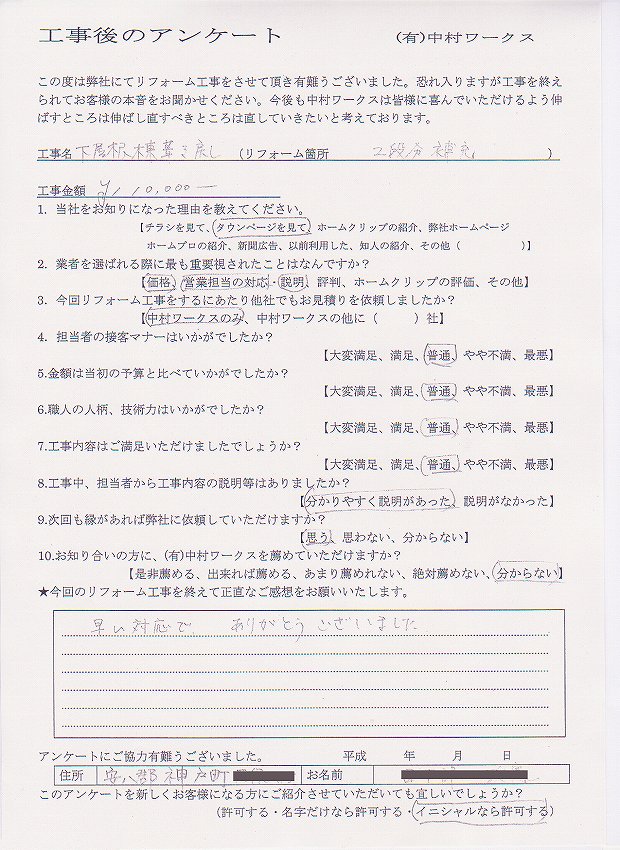 工事後のアンケート (有)中村ワークス
この度は弊社にてリフォーム工事をさせて頂き有難うございました。恐れ入りますが工事を終え
られてお客様の本音をお聞かせください。今後も中村ワークスは皆様に喜んでいただけるよう伸
ばすところは伸ばし直すべきところは直していきたいと考えております。
工事名 下屋根棟葺き戻し (リフォーム箇所 2段分補充 )
工事金額 ¥110,000ー
1. 当社をお知りになった理由を教えてください。
【チラシを見て、タウンページを見て、ホームクリップの紹介、弊社ホームページ
ホームプロの紹介、新聞広告、以前利用した、知人の紹介、その他（ )】
2. 業者を選ばれる際に最も重要視されたことはなんですか？
【価格、営業担当の対応・説明、評判、ホームクリップの評価、その他】
3. 今回リフォーム工事をするにあたり他社でもお見積りを依頼しましたか？
【中村ワークスのみ、中村ワークスの他に（ ）社】
4. 担当者の接客マナーはいかがでしたか？
【大変満足、満足、普通、やや不満、最悪】
5.金額は当初の予算と比べていかがでしたか？
【大変満足、満足、普通、やや不満、最悪】
6.職人の人柄、技術力はいかがでしたか？
【大変満足、満足、普通、やや不満、最悪】
7.工事内容はご満足いただけましたでしょうか？
【大変満足、満足、普通、やや不満、最悪】
8.工事中、担当者から工事内容の説明等はありましたか？
【分かりやすく説明があった、説明がなかった】
9.次回も縁があれば弊社に依頼していただけますか？
【思う、思わない、分からない】
10.お知り合いの方に、(有)中村ワークスを薦めていただけますか？
【是非薦める、出来れば薦める、あまり薦めれない、絶対薦めない、分からない】
★今回のリフォーム工事を終えて正直なご感想をお願いいたします。
早い対応で ありがとうございました
アンケートにご協力有難うございました。 平成 年 月 日
住所 安八郡神戸町 お名前
このアンケートを新しくお客様になる方にご紹介させていただいても宜しいでしょうか？
（許可する・名字だけなら許可する・イニシャルなら許可する）